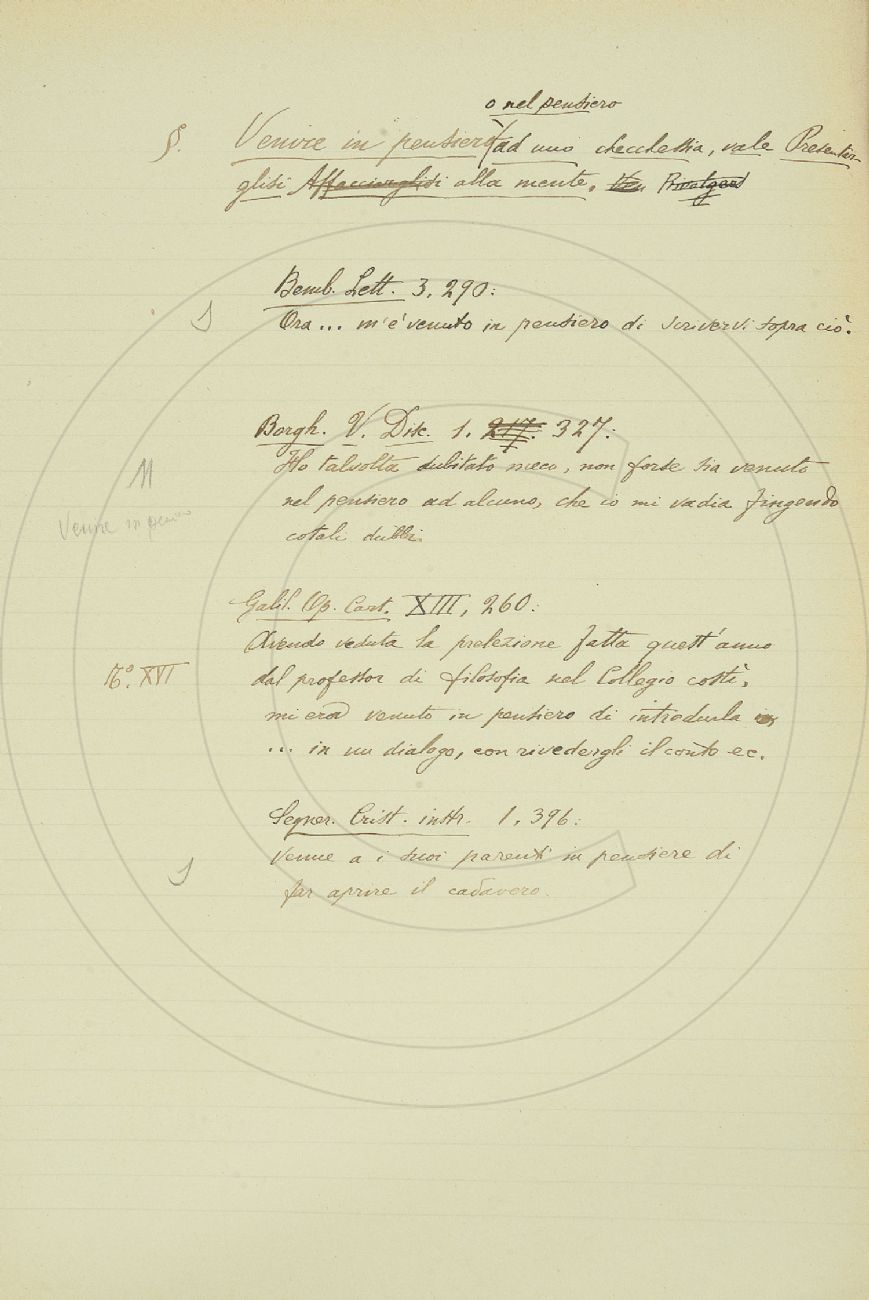 o nel pensiero
§. Venire in pensiero ad uno checchessia, vale Presentar-
glisi Affacciarglisi alla mente.
Bemb. Lett. 3, 290:
Ora... m'è venuto in pensiero di scrivervi sopra ciò.
Borgh. V. Disc. 1. 217. 327:
Ho talvolta dubitato meco, non forse sia venuto
nel pensiero ad alcuno, che io mi vadia fingendo
Venire in pensiero
cotali dubbi.
Galil. Op. Cant. XIII, 260:
Avendo veduta la prelezione fatta quest'anno
T.º XVI
dal professor di filosofia nel Collegio costì,
mi era venuto in pensiero di introdurla in
... in un dialogo, con rivedergli il conto ec.
Segner. Crist. instr. 1, 396:
Venne a i suoi parenti in pensiere di
far aprire il cadavero.